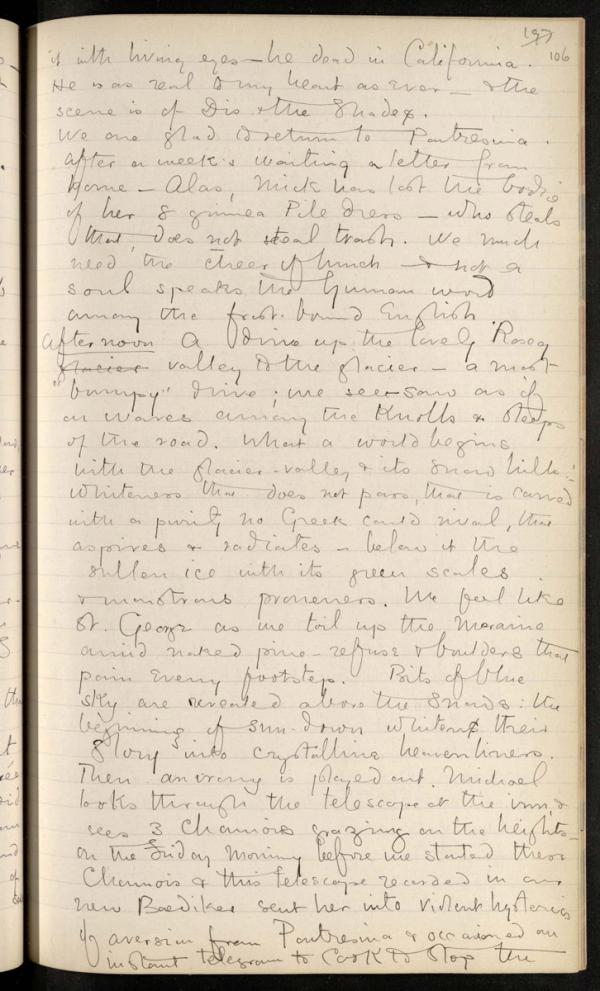 197
106
it with living eyes — he dead in California.
He is as real to my heart as ever — & the
scene is of Dis & the Shades.
We are glad to return to Pontresina.
After a week's waiting a letter from
Home — Alas, Mick has lost the bodice
of her 8 guinea Pile dress — who steals
that, does not steal trash. We much
need the cheer of lunch — & not a
soul speaks the human word
among the frost-bound English.
Afternoon A drive up the lovely Roseg
glacier valley to the glacier — a most
"bumpy" drive; we see-saw as if
on waves among the Knolls & steeps
of the road. What a world begins
with the glacier-valley & its snow hills!
Whiteness that does not pass, that is carved
with a purity no Greek could rival, that
aspires & radiates — below it the
sullen ice with its green scales
& monstrous proneness. We feel like
St. George as we toil up the Moraine
amid naked pine-refuse & boulders that
pain every footstep. Bits of blue
sky are revealed above the snows: the
beginning of sun-down whitens their
glory into crystalline heavenliness.
Then an irony is played out. Michael
looks through the telescope at the inn, &
sees 3 Chamois grazing on the heights —
on the Friday morning before we started these
Chamois & this telescope recorded in our
new Baedeker sent her into violent hysterics
of aversion from Pontresina & occasioned an
instant telegram to Cook to stop the